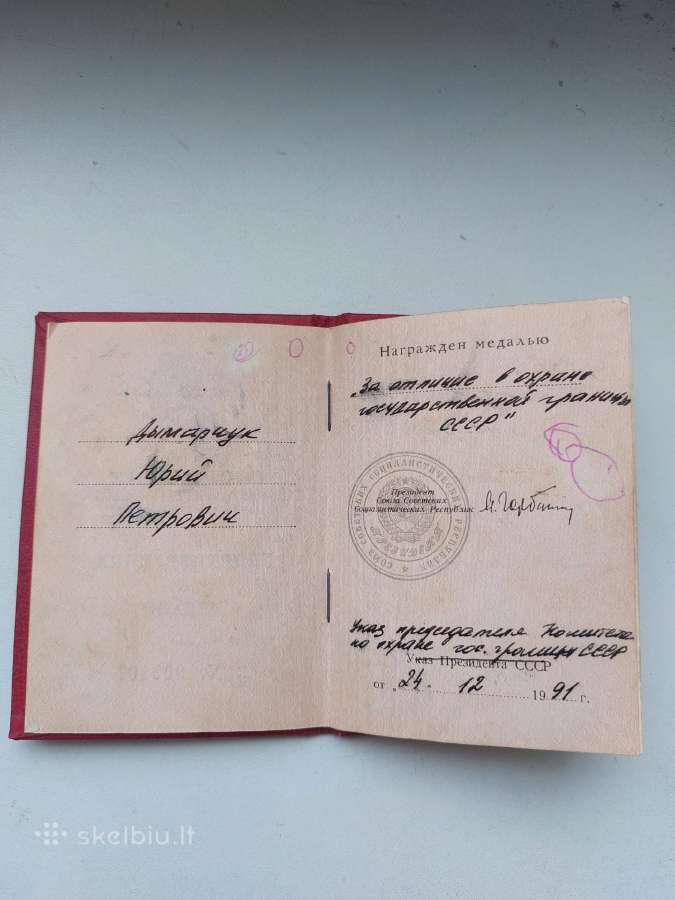 Дымарчук
Юрий
Петрович
Награжден медалью
"За отличие в охране
государственной границы
СССР"
СОЮЗ СОВЕТСКИХ СОЦИАЛИСТИЧЕСКИХ РЕСПУБЛИК
ПРЕЗИДЕНТ
Президент
Союза Советских
Социалистических Республик
Указ председателя Комитета
по охране гос. границы СССР
Указ Президента СССР
от „24. 12 1991 г.
skelbiu.lt